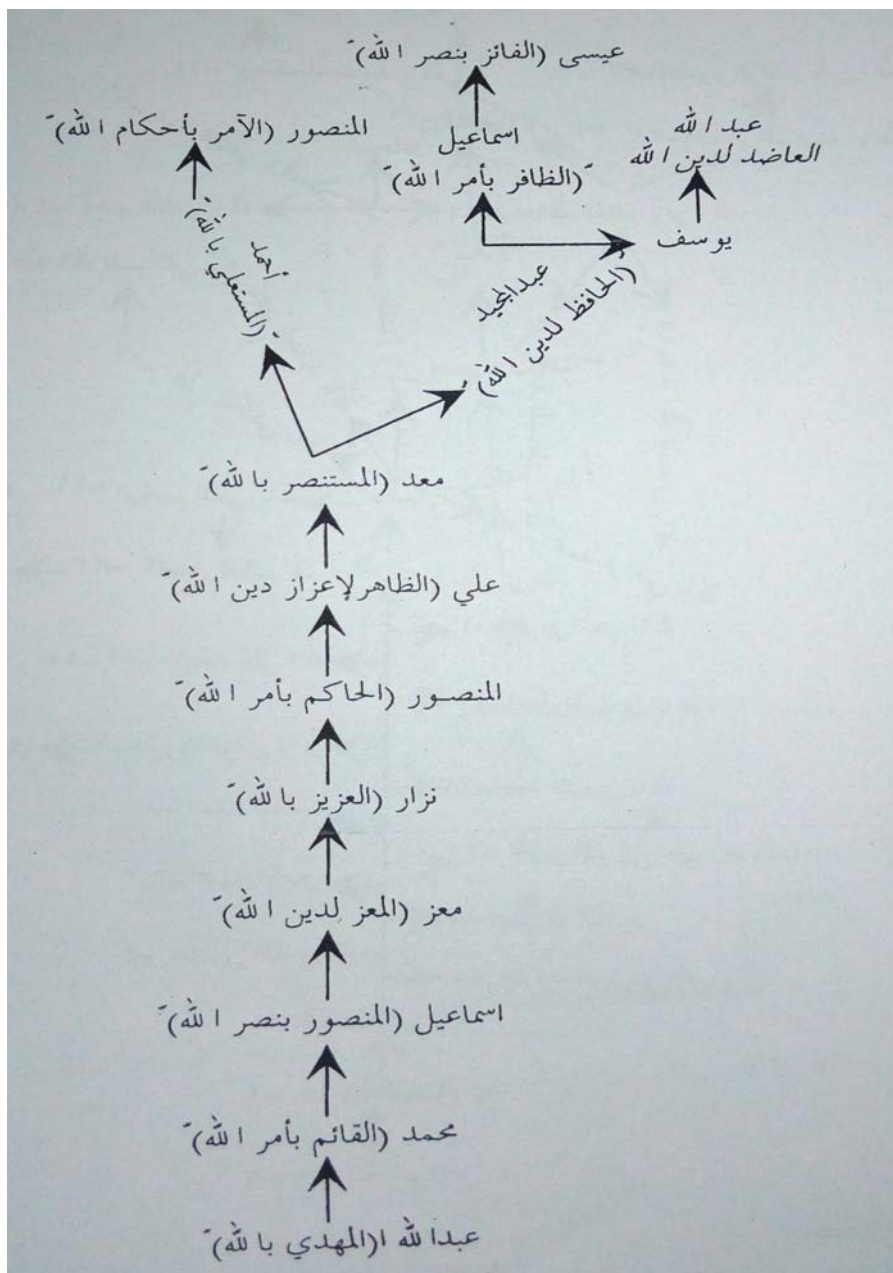 عيسى (الفائز بنصر الله)
المنصور (الآمر بأحكام الله)
اسماعيل
(الظافر بأمر الله)
عبد الله
العاضد لدين الله
يوسف
أحمد
(المستعلي بالله)
عبدالمجيد
(الحافظ لدين الله)
معد (المستنصر بالله)
علي (الظاهر لإعزاز دين الله)
المنصور (الحاكم بأمر الله)
نزار (العزيز بالله)
معز (المعز لدين الله)
اسماعيل (المنصور بنصر الله)
محمد (القائم بأمر الله)
عبدالله ا(لمهدي بالله)